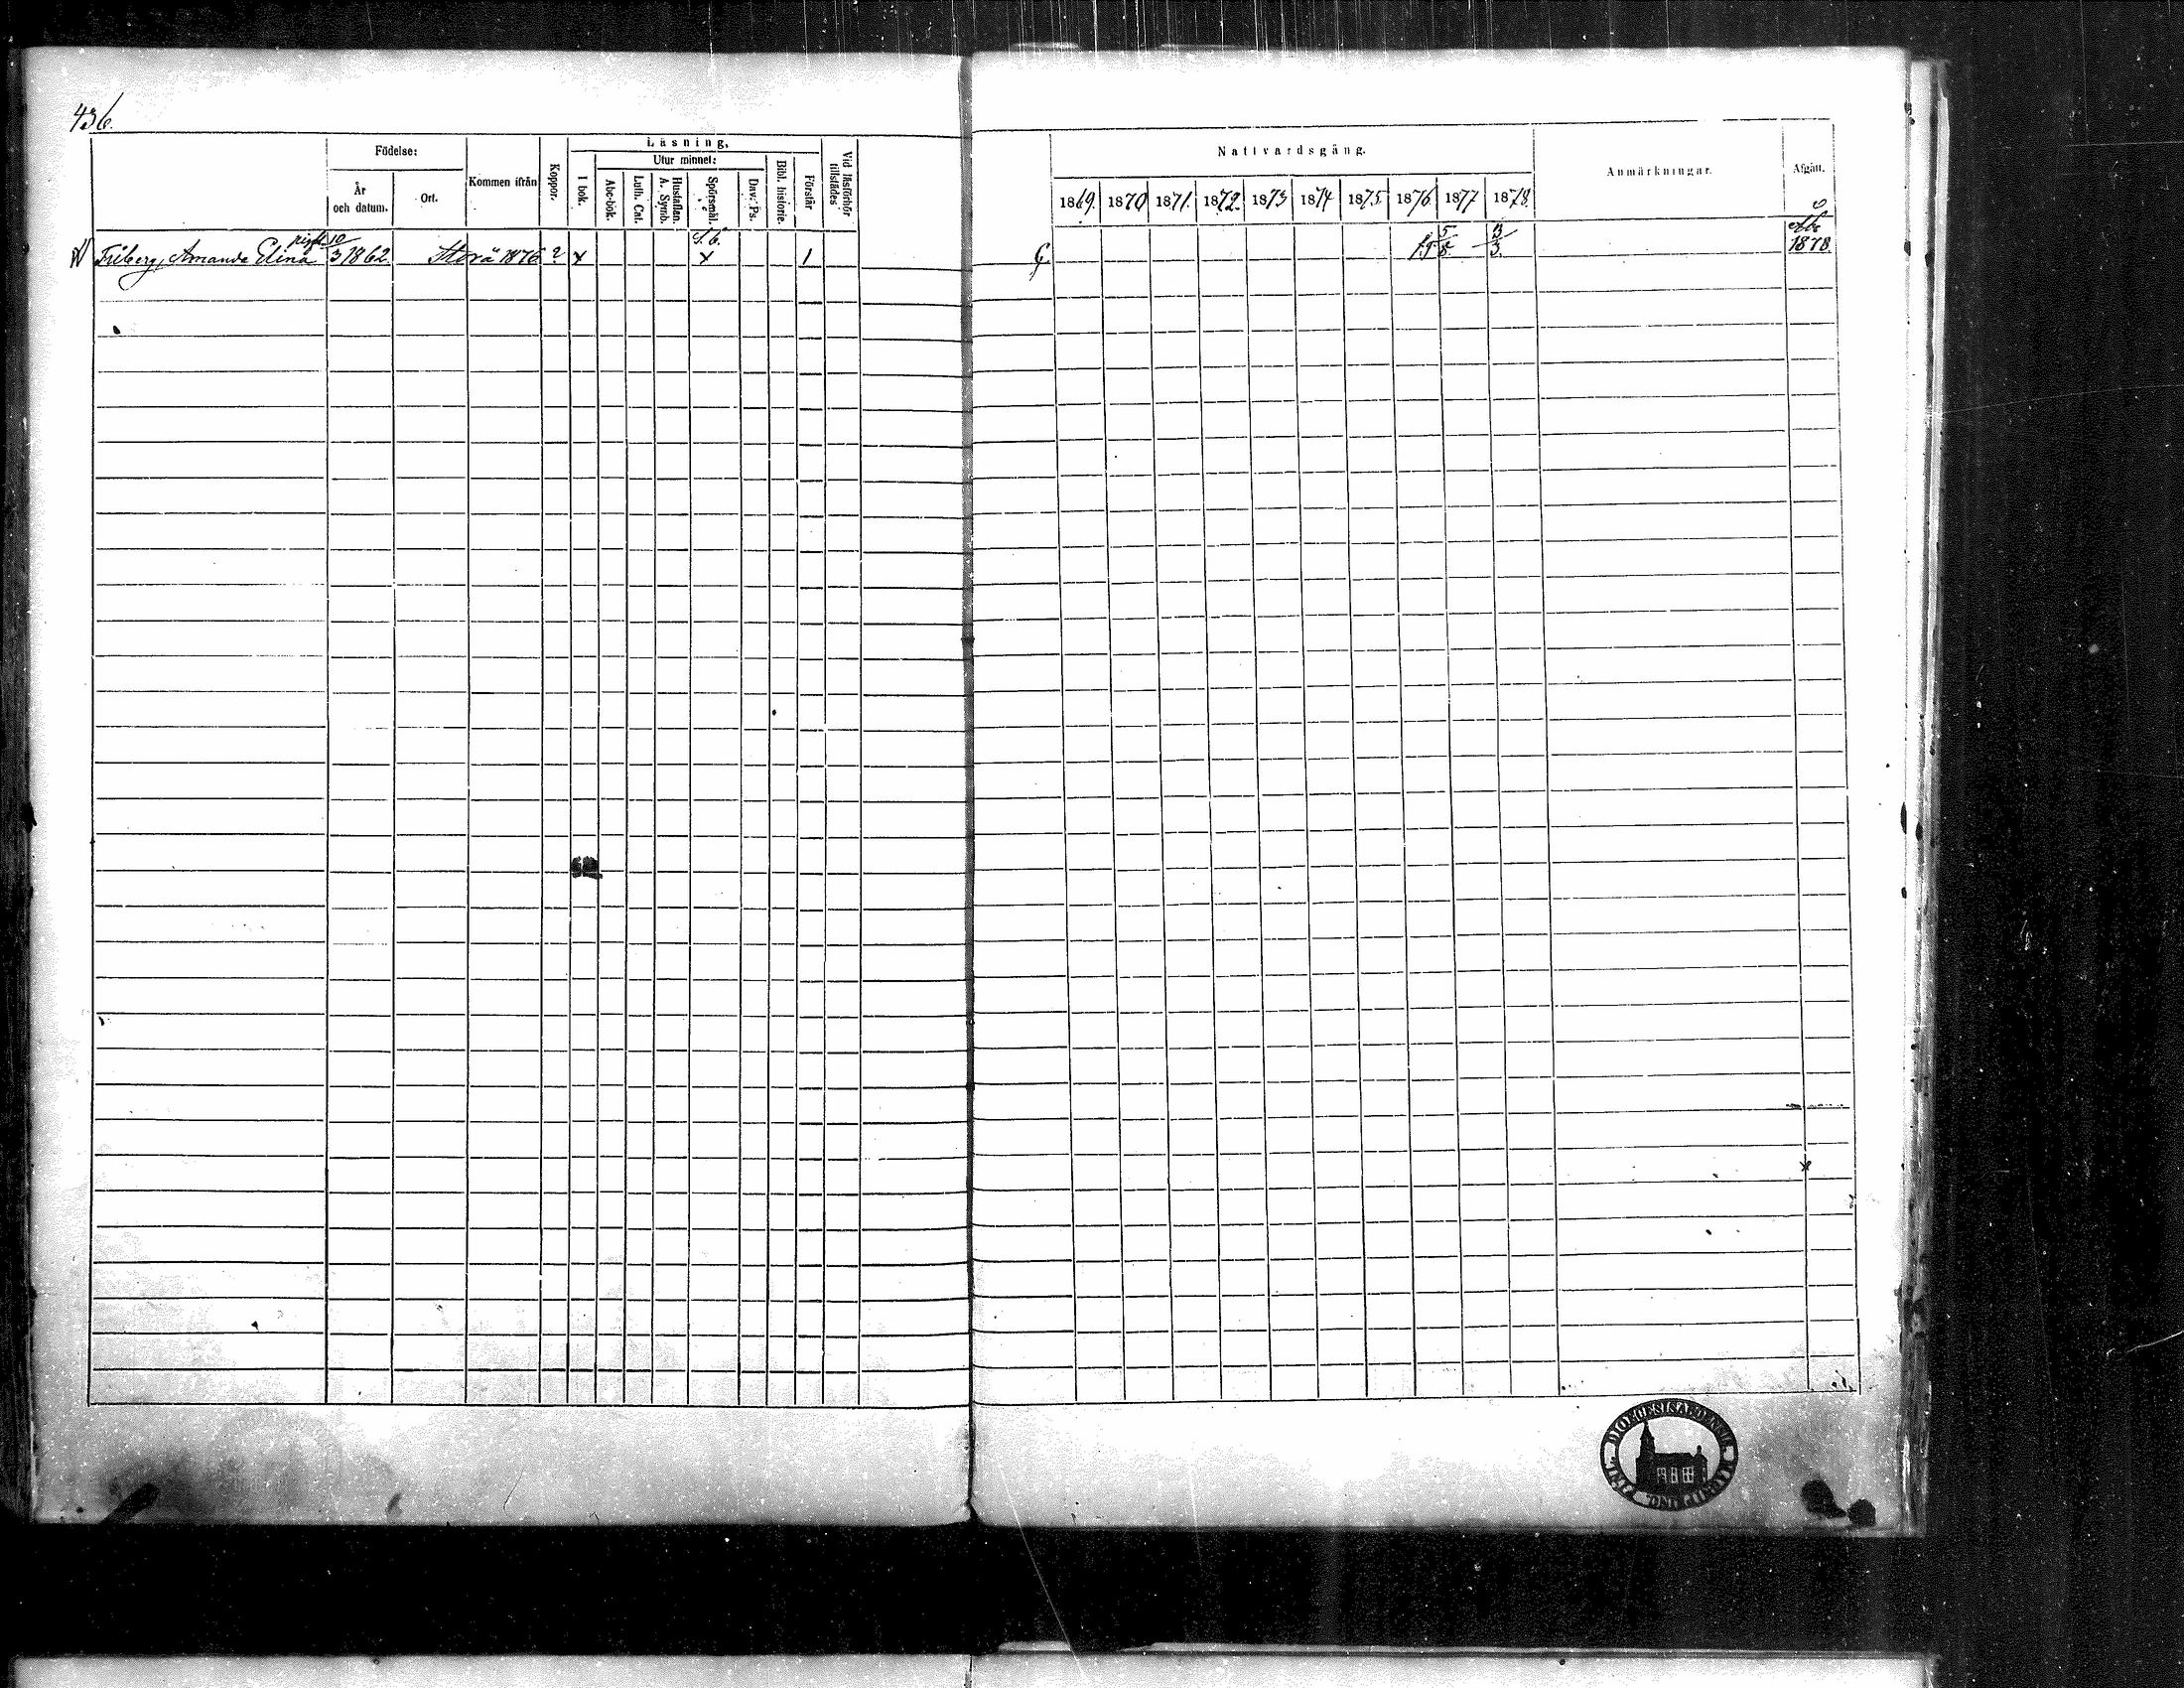 436.
Födelse:
År och datum.
Ort.
Kommen ifrån
Koppor.
Läsning.
I bok.
Utur minnet:
Abc-bok.
Luth. Cat.
Hustaflan. A. Symb.
Spörsmål.
Dav. Ps.
Bibl. historie.
Förstår
Vid läsförhör tillstädes
Nattvardsgång.
1869. 1870 1871. 1872. 1873 1874 1875. 1876 1877 1878.
Anmärkningar.
Afgått.
Friberg, Amanda Elina 10/3 1862. 1876 ? x S.b. x 1 5/8. 3/3. Åbo 1878.